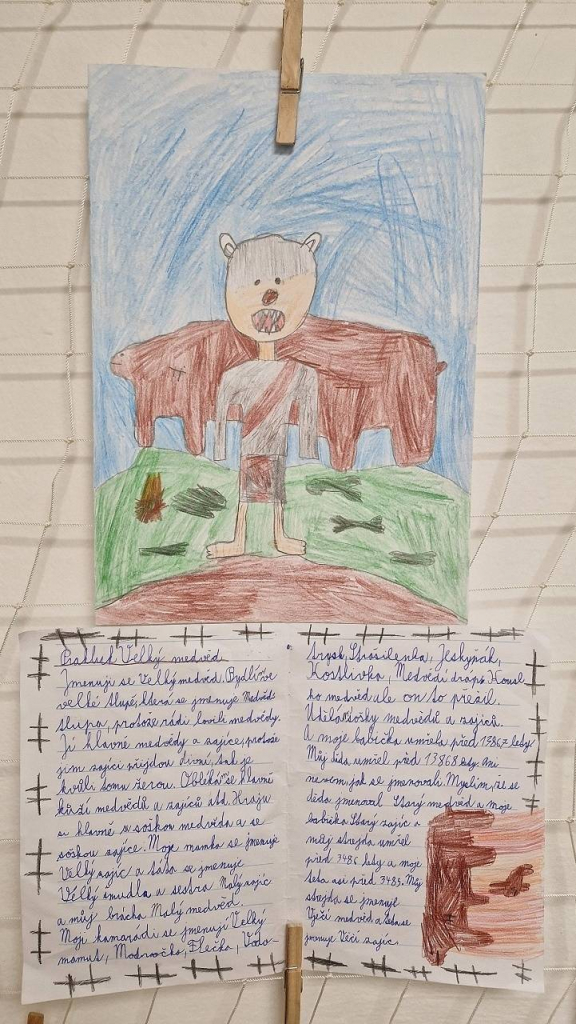 Pralud Velký medvěd
Jmenuji se Velký medvěd. Bydlí ve
velké tlupě, která se jmenuje Medvědí
tlupa, protože rádi lovili medvědy.
Jí hlavně medvědy a zajíce, protože
jim zajíci přijdou divní, tak je
kvůli tomu žerou. Obléká se hlavně
kůží medvědů a zajíců atd. Hraju
si hlavně s soškou medvěda a se
soškou zajíce. Moje mamka se jmenuje
Velký zajíc a táta se jmenuje
Velký čmudla a sestra Malý zajíc
a můj brácha Malý medvěd.
Moji kamarádi se jmenují Velký
mamut, Modroočko, Flečka, Vodo-
trysk, Strašilenka, Jeskyňák,
Kostlivka, Medvědí dráp.
ho medvěd ale on to přežil.
sošky medvědů a zajíců.
A moje babička umřela před 13867 lety.
Můj děda umřel před 13868 lety. Ani
nevím, jak se jmenovali. Myslím, že se
děda jmenoval Starý medvěd a moje
babička Starý zajíc a
můj strejda umřel
před 3486 lety a moje
teta asi před 3485. Můj
strejda se jmenuje
Věčí medvěd a teta se
jmenuje Věčí zajíc.